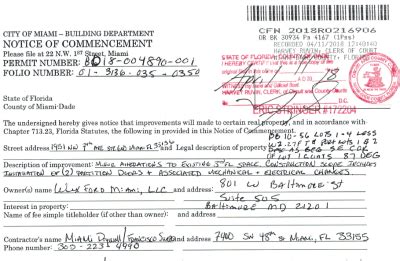 CFN 2018R0216906
OR BK 30934 Pg 4167 (1Pgs)
RECORDED 04/11/2018
HARVEY RUVIN, CLERK OF COURT
CITY OF MIAMI – BUILDING DEPARTMENT
Please file at 22 N.W. 1st Street, Miami
NOTICE OF COMMENCEMENT
PERMIT NUMBER: BD18-004890-001
FOLIO NUMBER: 01-3136-035-0350
STATE OF FLORIDA, COUNTY OF
I HEREBY CERTIFY that this is a true copy of the
original filed in this office on
HARVEY RUVIN, CLERK, of Circuit and County Courts
ERIC STRINGER #172204
State of Florida
County of Miami-Dade
The undersigned hereby gives notice that improvements will be made to certain real property, and in accordance with
Chapter 713.23, Florida Statutes, the following is provided in this Notice of Commencement.
PB 10-56 LOTS 1-4 LESS
Street address: 1951 NW 7th Ave and Legal description of property:
Description of improvement: Minor Alterations to Existing 3rd FL Space. Construction Scope Includes
Installation of (2) Partition Doors & Associated Mechanical & Electrical Changes
Owner(s) name Wexford Miami, LLC and address: 801 W Baltimore St
Suite 505
Interest in property: Baltimore MD 21201
Name of fee simple titleholder (if other than owner): and address:
Contractor's name Miami Drywall / Francisco and address: 7400 SW 48th St Miami, FL 33155
Phone number: 305-223-4990